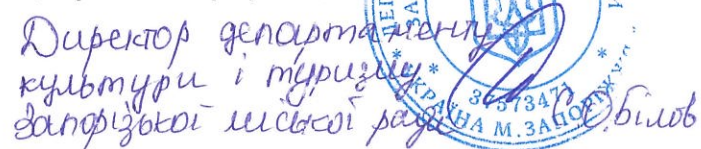 Директор департаменту
культури і туризму
Запорізької міської ради С.О.Білов
УКРАЇНА М.ЗАПОРІЖЖЯ